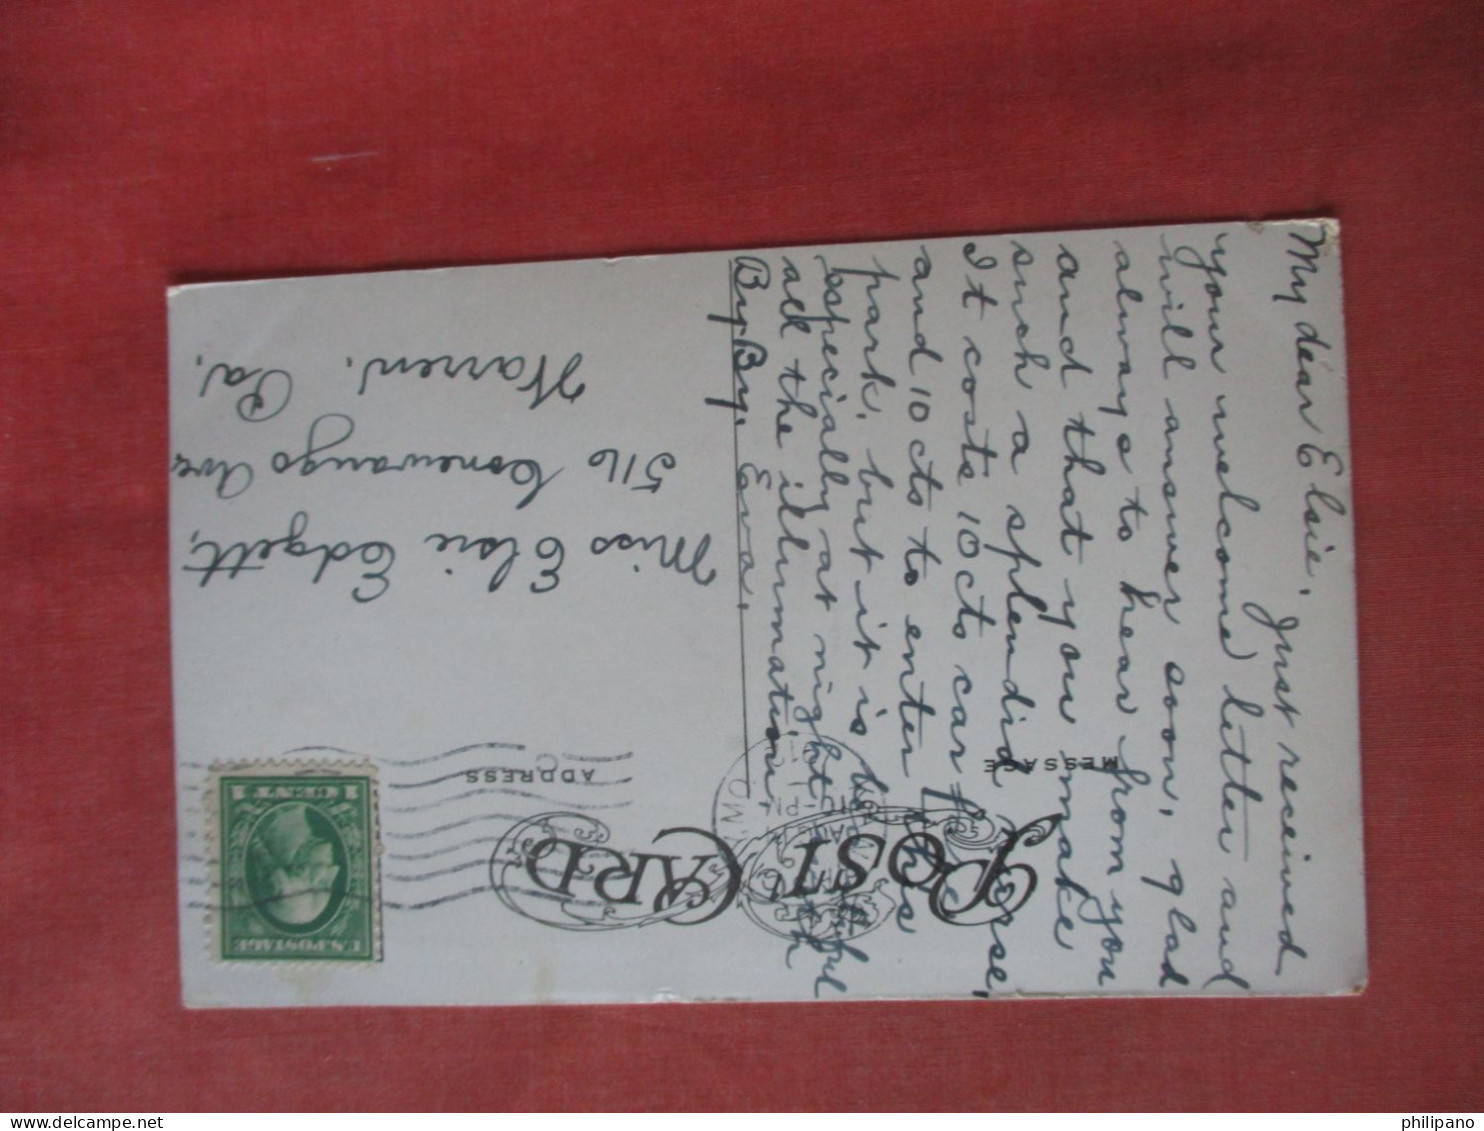 POST CARD
MESSAGE
ADDRESS
My dear Elsie, Just received
your welcome letter and
will answer soon, glad
always to hear from you
and that you make
such a splendid nurse,
It costs 10 cts car fare
and 10 cts to enter this
park, but it is beautiful
especially at night with
all the illumination
By By. Eva.
Miss Elsie Edgett,
516 Conewango Ave
Warren,
Pa.
U.S. POSTAGE
1 CENT 1
philipano